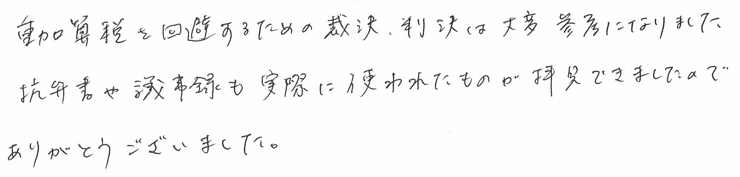 重加算税を回避するための裁決、判決は大変参考になりました
抗弁書や議事録も実際に使われたものが拝見できましたので
ありがとうございました。